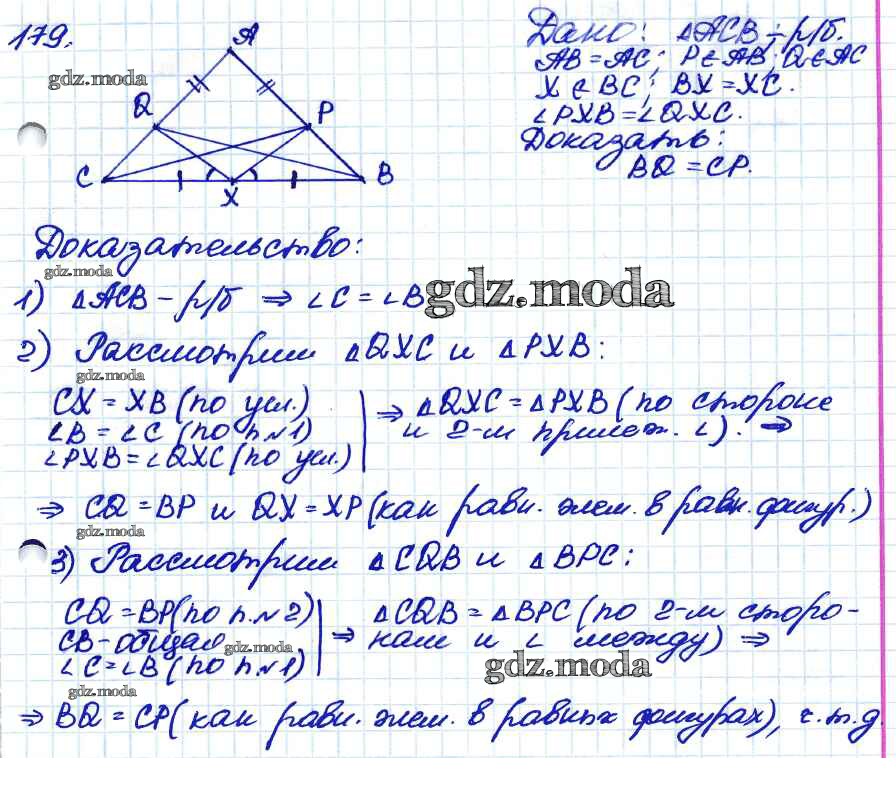 179.
A
Q
P
C
X
B
gdz.moda
Дано: ΔACB – р/б.
AB = AC; P ∈ AB; Q ∈ AC
X ∈ BC; BX = XC.
∠PXB = ∠QXC.
Доказать:
BQ = CP.
Доказательство:
gdz.moda
1) ΔACB – р/б ⇒ ∠C = ∠B
gdz.moda
2) Рассмотрим ΔQXC и ΔPXB:
gdz.moda
CX = XB (по усл.)
∠B = ∠C (по п.№1)
∠PXB = ∠QXC (по усл.)
⇒ ΔQXC = ΔPXB (по стороне
и 2-м прилеж. ∠). ⇒
⇒ CQ = BP и QX = XP (как равн. элем. в равн. фигур.)
gdz.moda
3) Рассмотрим ΔCQB и ΔBPC:
CQ = BP (по п.№2)
CB – общая
∠C = ∠B (по п.№1)
gdz.moda
⇒ ΔCQB = ΔBPC (по 2-м сторо-
нам и ∠ между) ⇒
gdz.moda
gdz.moda
⇒ BQ = CP (как равн. элем. в равных фигурах), ч.т.д.